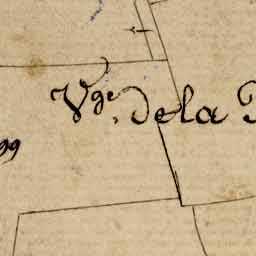 Vge. de la
99